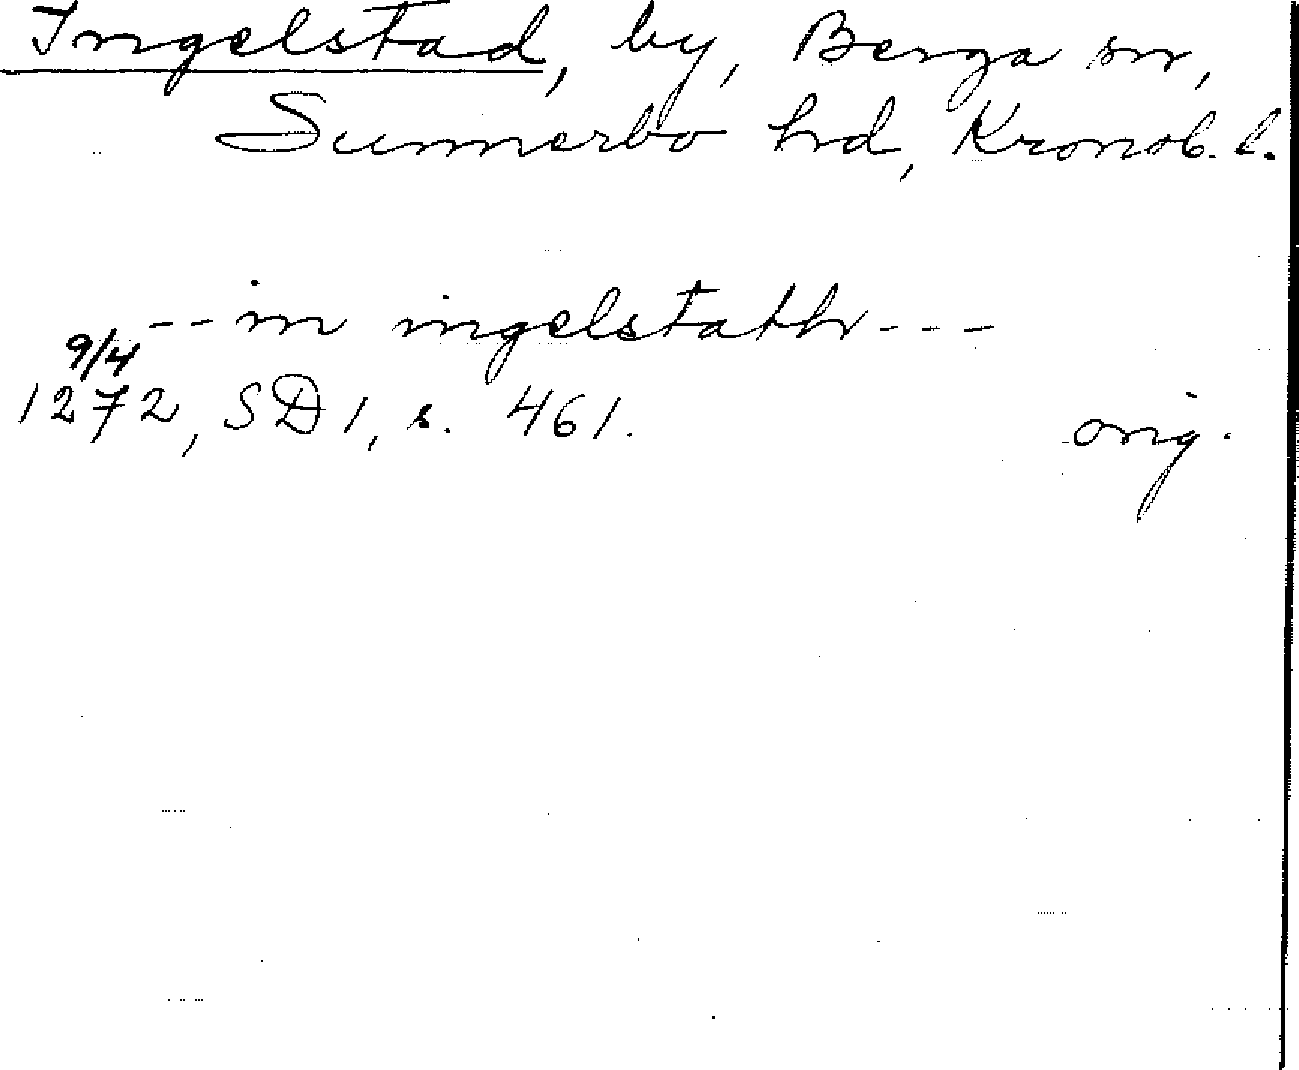 Ingelstad, by, Berga sn,
Sunnerbo hd, Kronob. l.
--in ingelstath---
9/4
1272, SD 1, s. 461. orig.